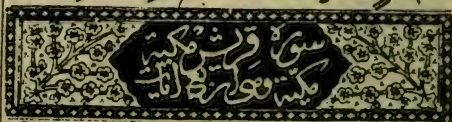 سورة قريش مكية
مكية وهى اربع ايات